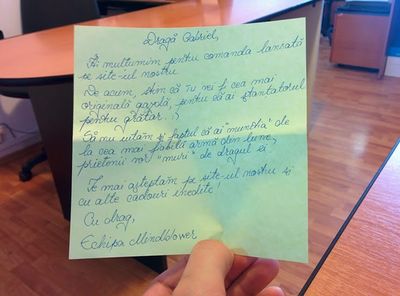 Dragă Gabriel,
Îți mulțumim pentru comanda lansată
pe site-ul nostru.
De acum, știm că tu vei fi cea mai
originală gazdă, pentru că ai ștantatorul
pentru grătar. :)
Să nu uităm și faptul că ai "muniția" de
la cea mai fabuloasă armă din lume,
prietenii vor "muri" de dragul ei.
Te mai așteptăm pe site-ul nostru și
cu alte cadouri inedite!
Cu drag,
Echipa Mindblower